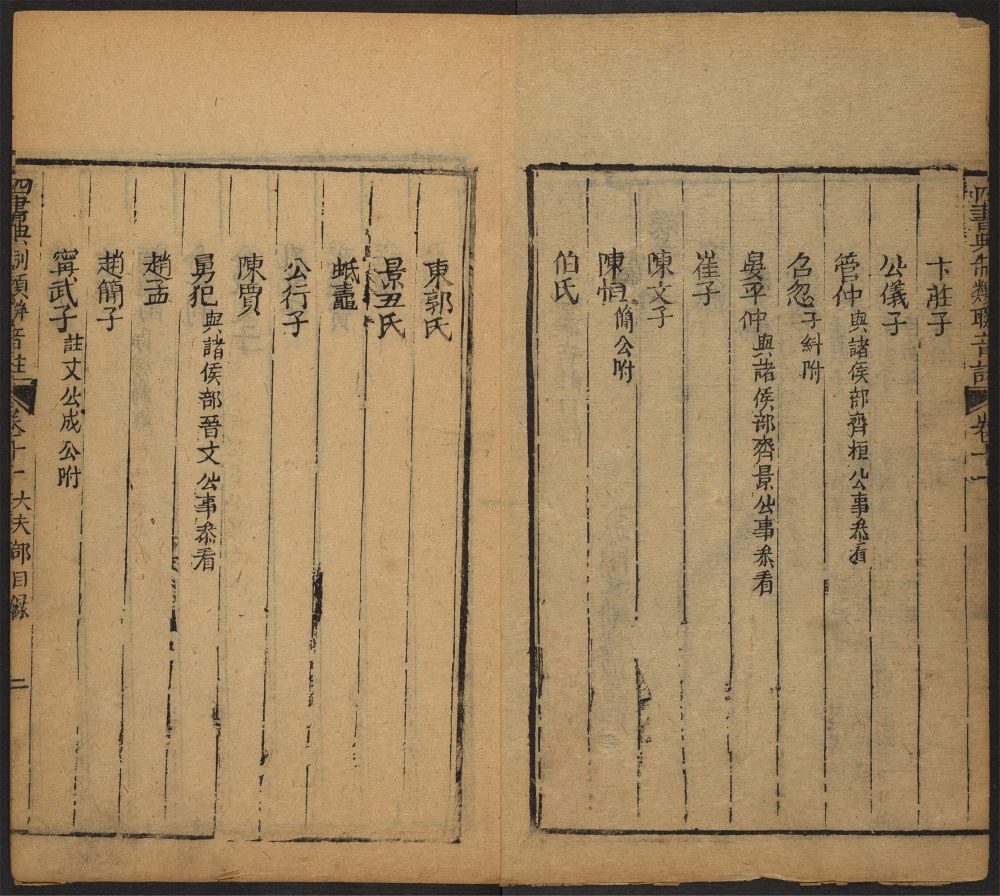 四書典制類聯音註 卷十一
卞莊子
公儀子
管仲 與諸侯部齊桓公事叅看
召忽 子糾附
晏平仲 與諸侯部齊景公事叅看
崔子
陳文子
陳恒 簡公附
伯氏
東郭氏
景丑氏
蚳鼃
公行子
陳賈
舅犯 與諸侯部晉文公事叅看
趙孟
趙簡子
甯武子 註文公成公附
四書典制類聯音註 卷十一 大夫部目錄 二